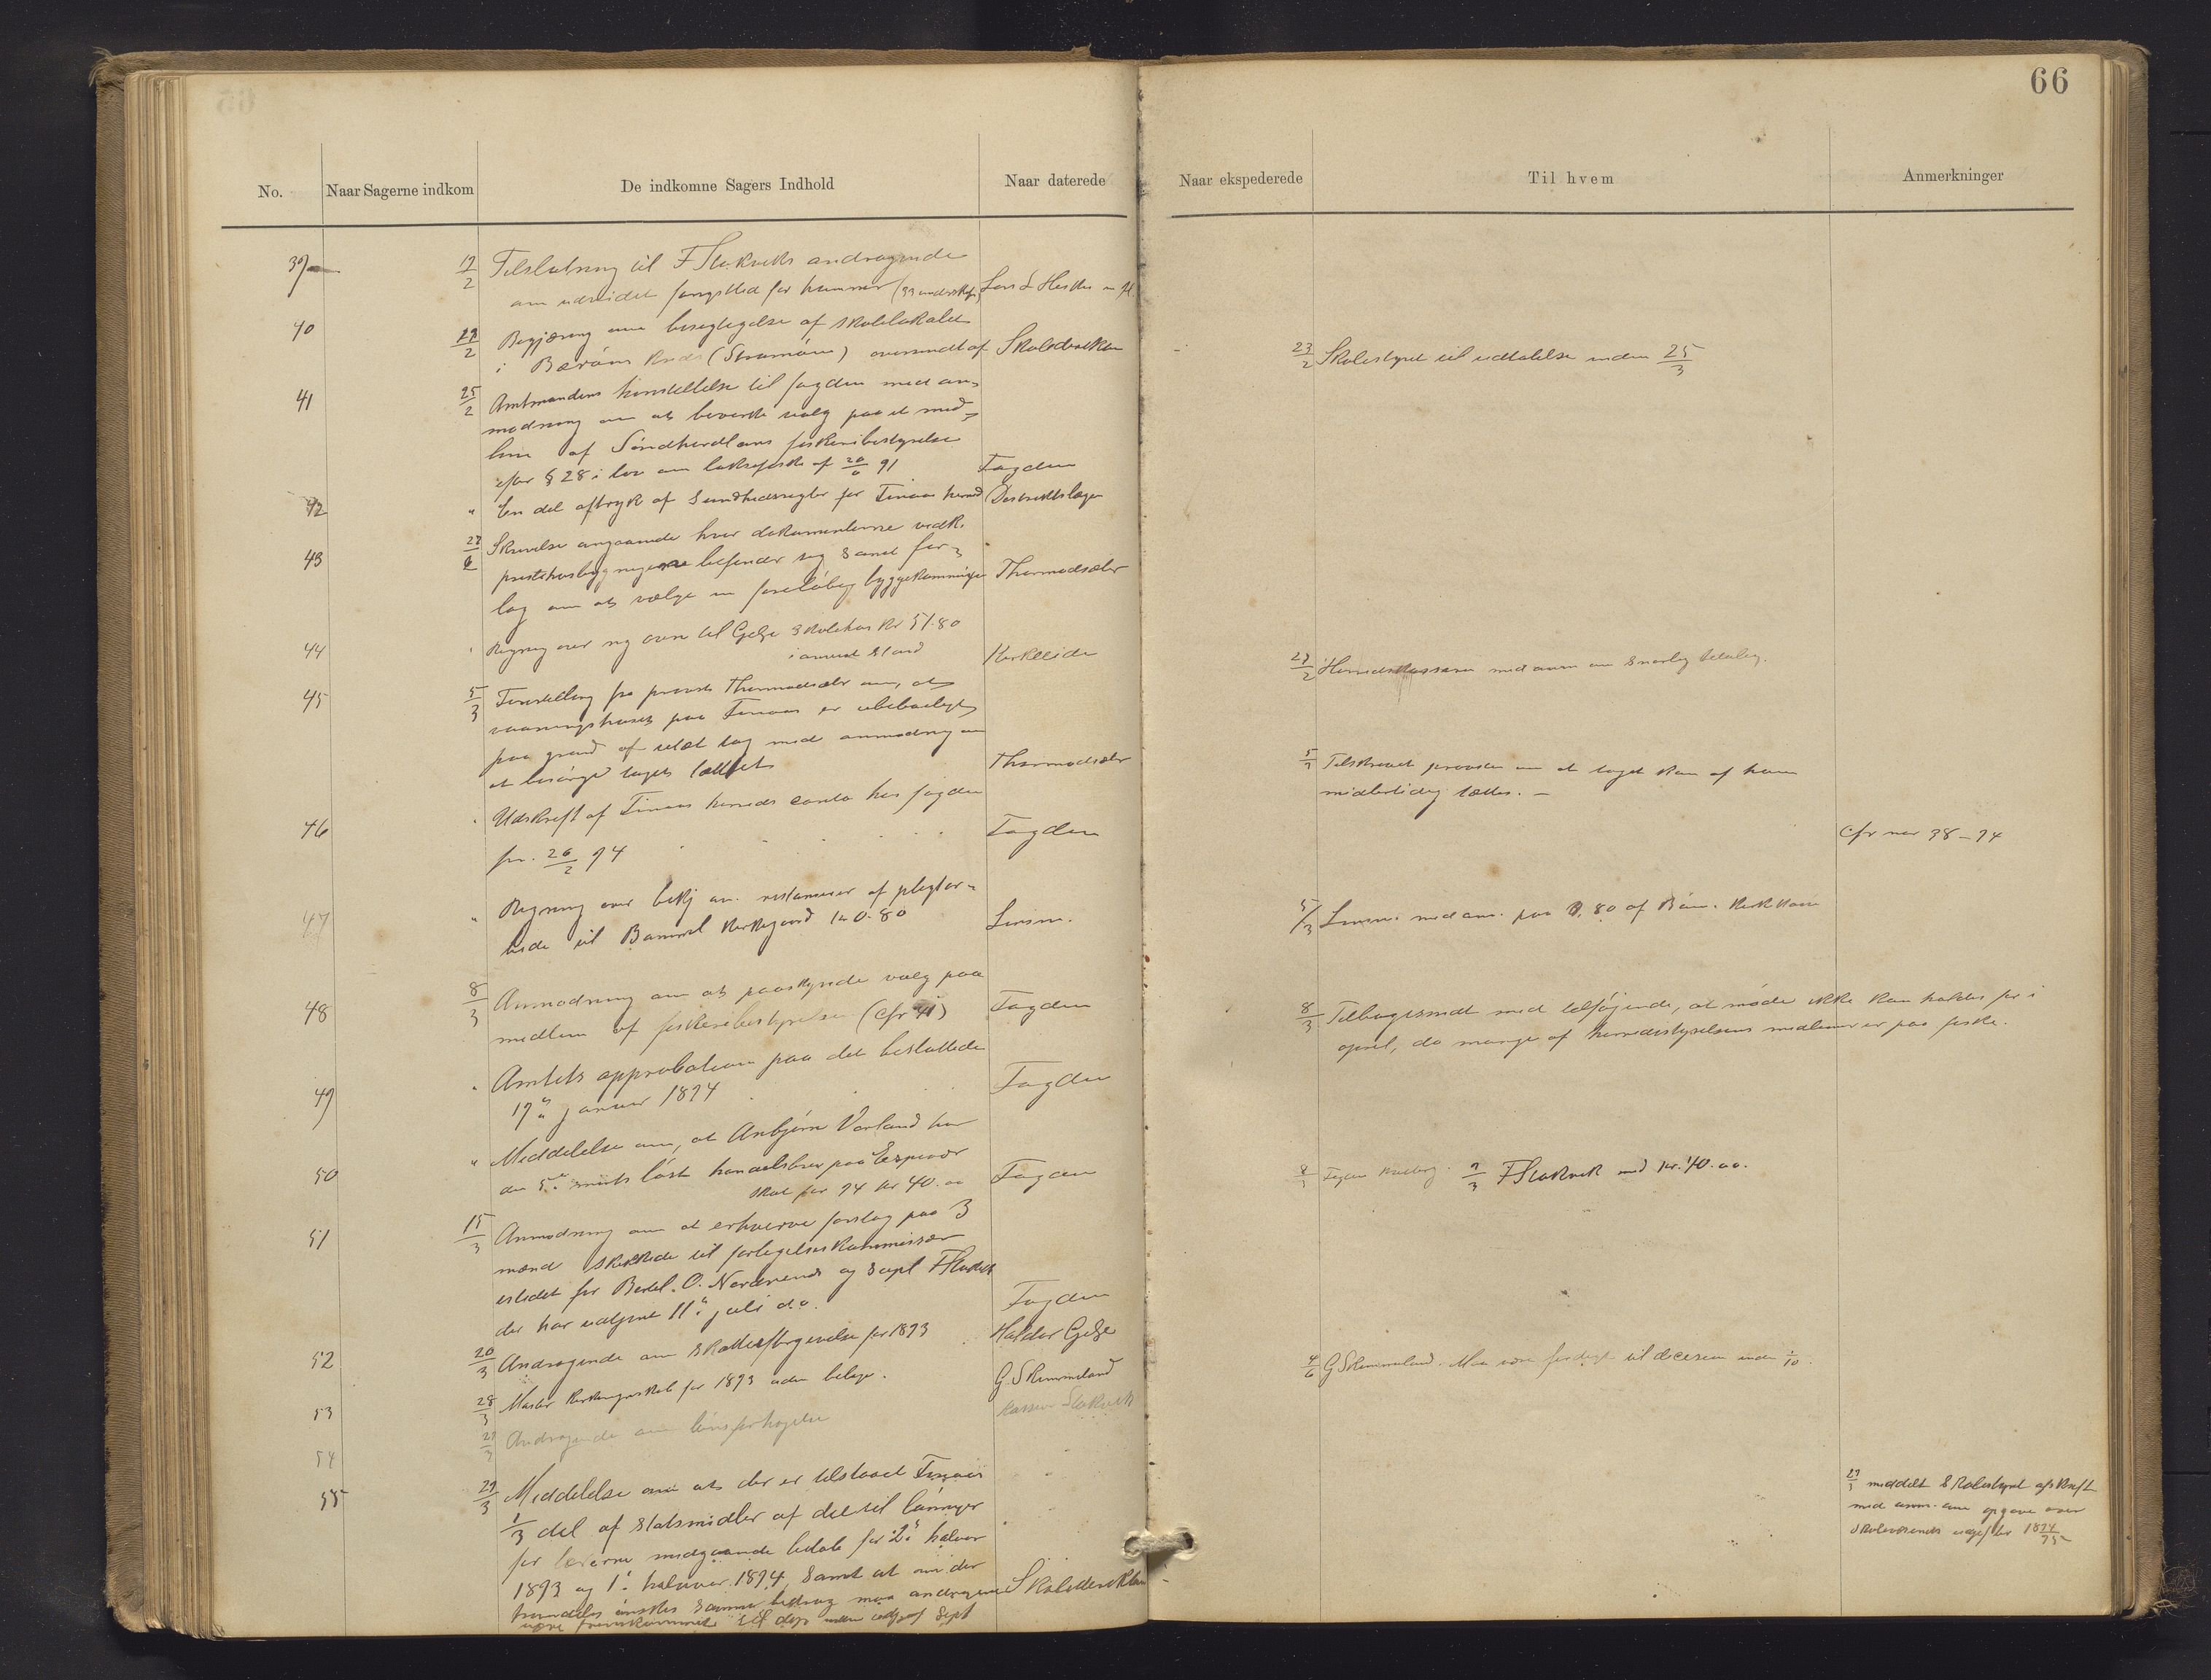 66
No.
Naar Sagerne indkom
De indkomne Sagers Indhold
Naar daterede
Naar ekspederede
Til hvem
Anmerkninger
39
19/2 Tilslutning til F Stokviks andragende
om udvidet fangsttid for hummer (33 underskr)
40
22/2 Begjæring om besigtigelse af skolelokalet
i Børøens kreds (Strømøen) oversendt af Skoledirektør
23/2 Skolestyret til udtalelse inden 25/3
41
25/2 Amtmandens henstillelse til fogden med an-
modning om at bevirke valg paa et med-
lem af Søndhordlans fiskeribestyrelse
efter § 28 i lov om laksefiske af 20/6 91 Fogden
42
" En del aftryk af Sundhedsregler for Finaas herred Distriktslægen
43
27/2 Skrivelse angaaende hvor dokumenterne vedk.
prestehusbygningerne befinder sig samt for-
lag om at vælge en foreløbig byggekommission Thormodsæter
44
" Regning over ny ovn til Gjelse Skolehus kr 51.80
i anvist stand
27/2 Herredskasseren med anm om snarlig betaling.
45
5/3 Forestilling fra provst Thormodsæter om, at
vaaningshuset paa Finaas er ubeboeligt
paa grund af utæt tag med anmodning om
at besørge taget tættet Thormodsæter
5/3 Tilskrevet provsten om at taget kan af ham
midlertidig tættes. —
46
" Udskrift af Finaas herreds conto hos fogden
pr. 26/2 94 Fogden
cfr nr 38 – 94
47
" Regning over bekj an. restancer af pligtar-
beide til Bømmel kirkegaard kr 0.80 Lensm.
5/3 Lensm. med anv. paa 0.80 af Bøm. kirkekasse
48
8/3 Anmodning om at paaskynde valg paa
medlem af fiskeribestyrelsen (cfr 41) Fogden
8/3 Tilbagesendt med tilføiende, at møde ikke kan holdes før i
april, da mange af herredsstyrelsens medlemmer er paa fiske.
49
" Amtets approbation paa det besluttede
19de januar 1894 Fogden
50
" Meddelelse om, at Anbjørn Vorland har
den 5te mts løst handelsbrev paa Espevær
skat for 94 kr 40.00 Fogden
8/3 Fogden 9/3 F Stokvik med kr. 40.00.
51
15/3 Anmodning om at erhverve forslag paa 3
mænd skikkede til forligelseskommissær
istedet for Bertel O. Nordnends og supl F Stokvik
der har udtjent 11te juli d.a. Fogden
52
20/3 Andragende om skatteeftergivelse for 1893 Haldor Gjelse
53
28/3 Moster kirkeregnskab for 1893 uden belage. G. Skimmeland
4/6 G Skimmeland. Maa være færdigt til decision inden 1/10.
54
29/3 Andragende om lønsforhøielse Kasserer Stokvik
55
29/3 Meddelelse om at der er tilstaaet Finaas
1/3 del af statsmidler af det til lønninger
for lærerne medgaaende beløb for 2det halvaar
1893 og 1ste halvaar 1894, samt at om der
fremdeles ønskes samme bidrag maa andragende Skoledirektør
være fremkommet til inden udg af Sept
29/3 meddelt Skolestyret afskrift
med anm. om opgave over
skolevæsenets udgifter 1894/95